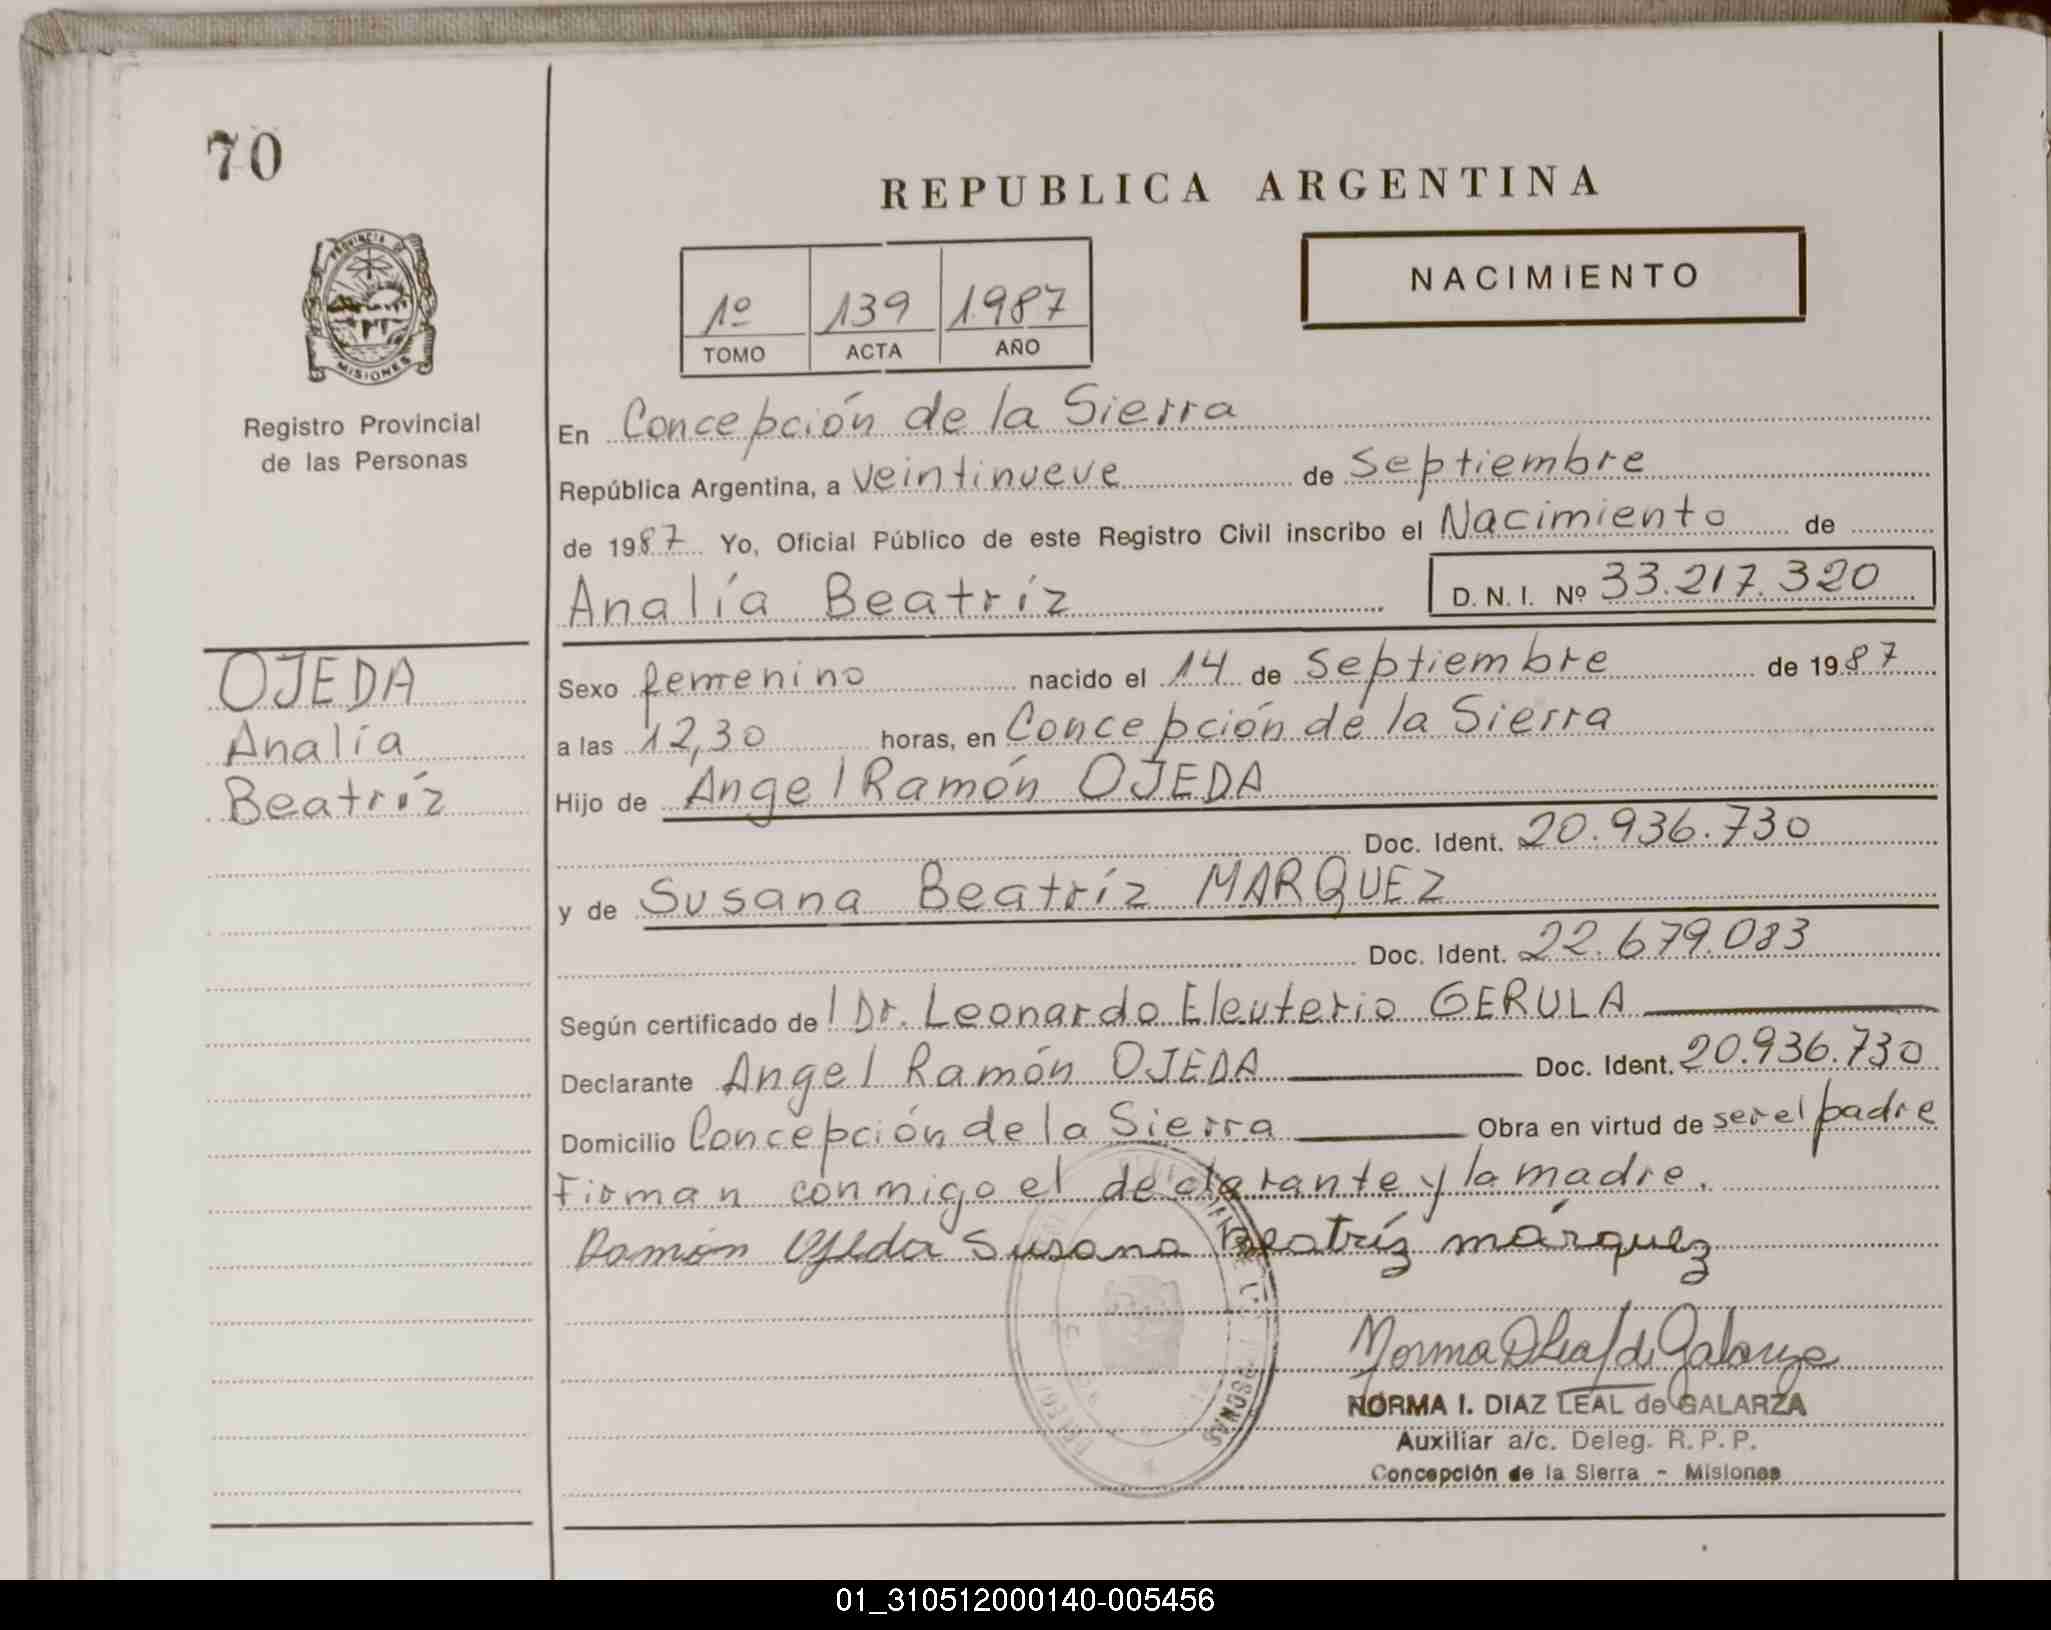 70
REPUBLICA ARGENTINA
PROVINCIA DE
MISIONES
Registro Provincial
de las Personas
1º 139 1987
TOMO ACTA AÑO
NACIMIENTO
En Concepción de la Sierra
República Argentina, a veintinueve de Septiembre
de 1987 Yo, Oficial Público de este Registro Civil inscribo el Nacimiento de
Analía Beatríz D.N.I. Nº 33.217.320
OJEDA
Analía
Beatríz
Sexo femenino nacido el 14 de Septiembre de 1987
a las 12,30 horas, en Concepción de la Sierra
Hijo de Angel Ramón OJEDA
Doc. Ident. 20.936.730
y de Susana Beatríz MARQUEZ
Doc. Ident. 22.679.083
Según certificado del Dr. Leonardo Eleuterio GERULA
Declarante Angel Ramón OJEDA Doc. Ident. 20.936.730
Domicilio Concepción de la Sierra Obra en virtud de ser el padre
Firman conmigo el declarante y la madre.
Ramón Ojeda Susana Beatríz márquez
Norma D Leal de Galarza
NORMA I. DIAZ LEAL de GALARZA
Auxiliar a/c. Deleg. R. P. P.
Concepción de la Sierra - Misiones
PERSONAS
01_310512000140-005456